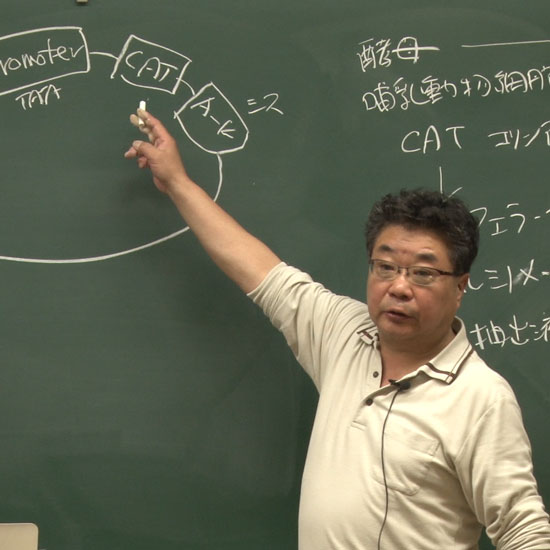 romoter
TATA
CAT
A-K
ミス
酵母
哺乳動物細胞
CAT
フェラー
ルシメー
抽出液